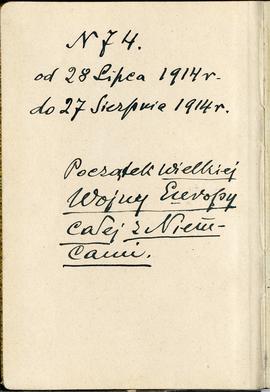 N 74.
od 28 Lipca 1914 r.
do 27 Sierpnia 1914 r.
Początek Wielkiej
Wojny Europy
całej z Niem-
cami.